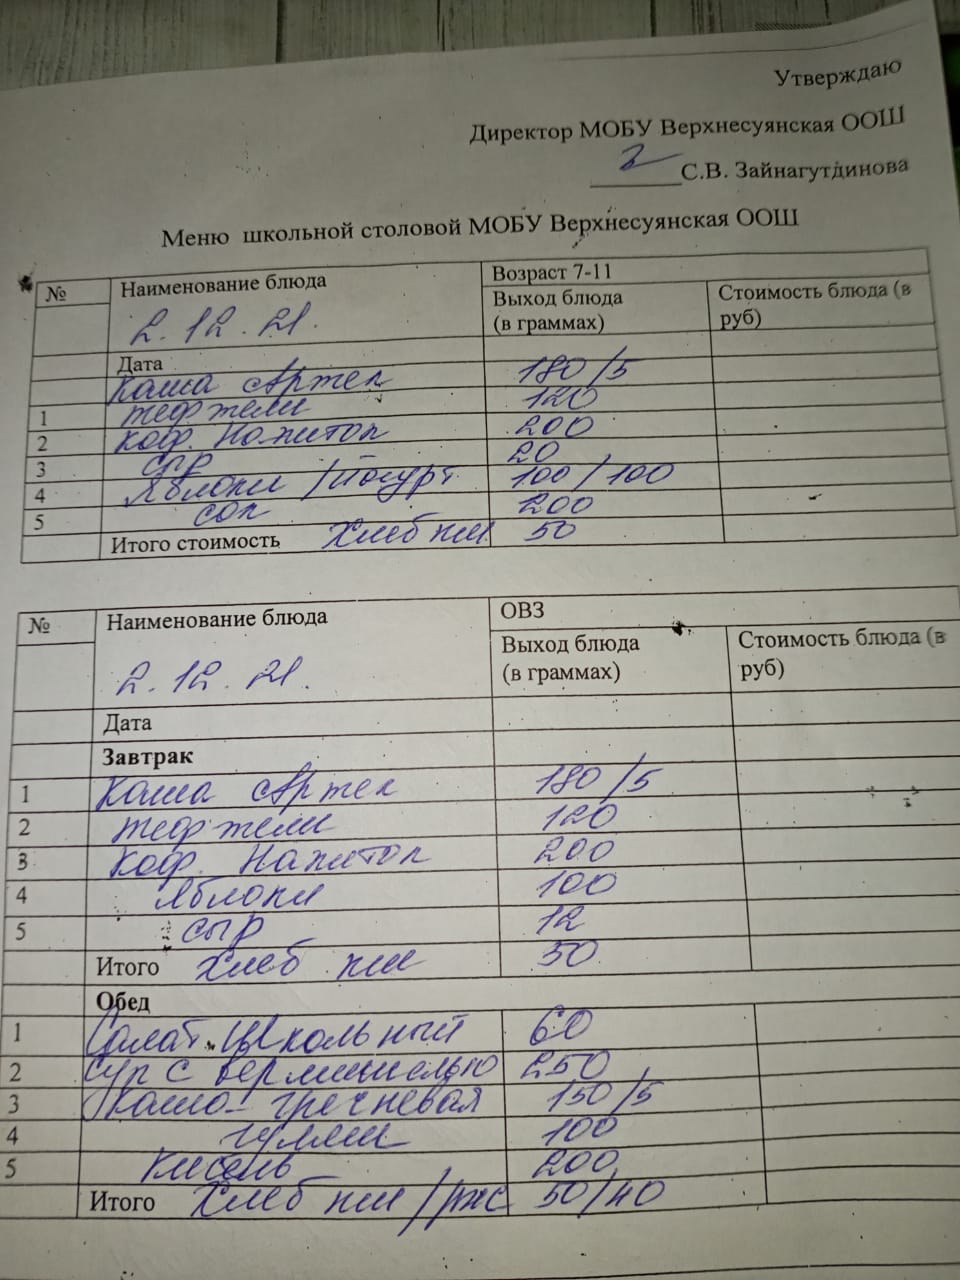 Утверждаю
Директор МОБУ Верхнесуянская ООШ
С.В. Зайнагутдинова
Меню школьной столовой МОБУ Верхнесуянская ООШ
№ Наименование блюда Возраст 7-11
Выход блюда (в граммах) Стоимость блюда (в руб)
2.12.21.
Дата
Каша Артек 180/5
1 тефтели 120
2 Коф. Напиток 200
3 сыр 20
4 Яблоки/Йогурт 100/100
5 сок 200
Итого стоимость Хлеб пш 50
№ Наименование блюда ОВЗ
Выход блюда (в граммах) Стоимость блюда (в руб)
2.12.21.
Дата
Завтрак
1 Каша Артек 180/5
2 тефтели 120
3 Коф. Напиток 200
4 Яблоки 100
5 сыр 12
Итого Хлеб пш 50
Обед
1 Салат Школьный 60
2 Суп с вермишелью 250
3 Каша гречневая 150/5
4 гуляш 100
5 Кисель 200
Итого Хлеб пш/рж 50/40